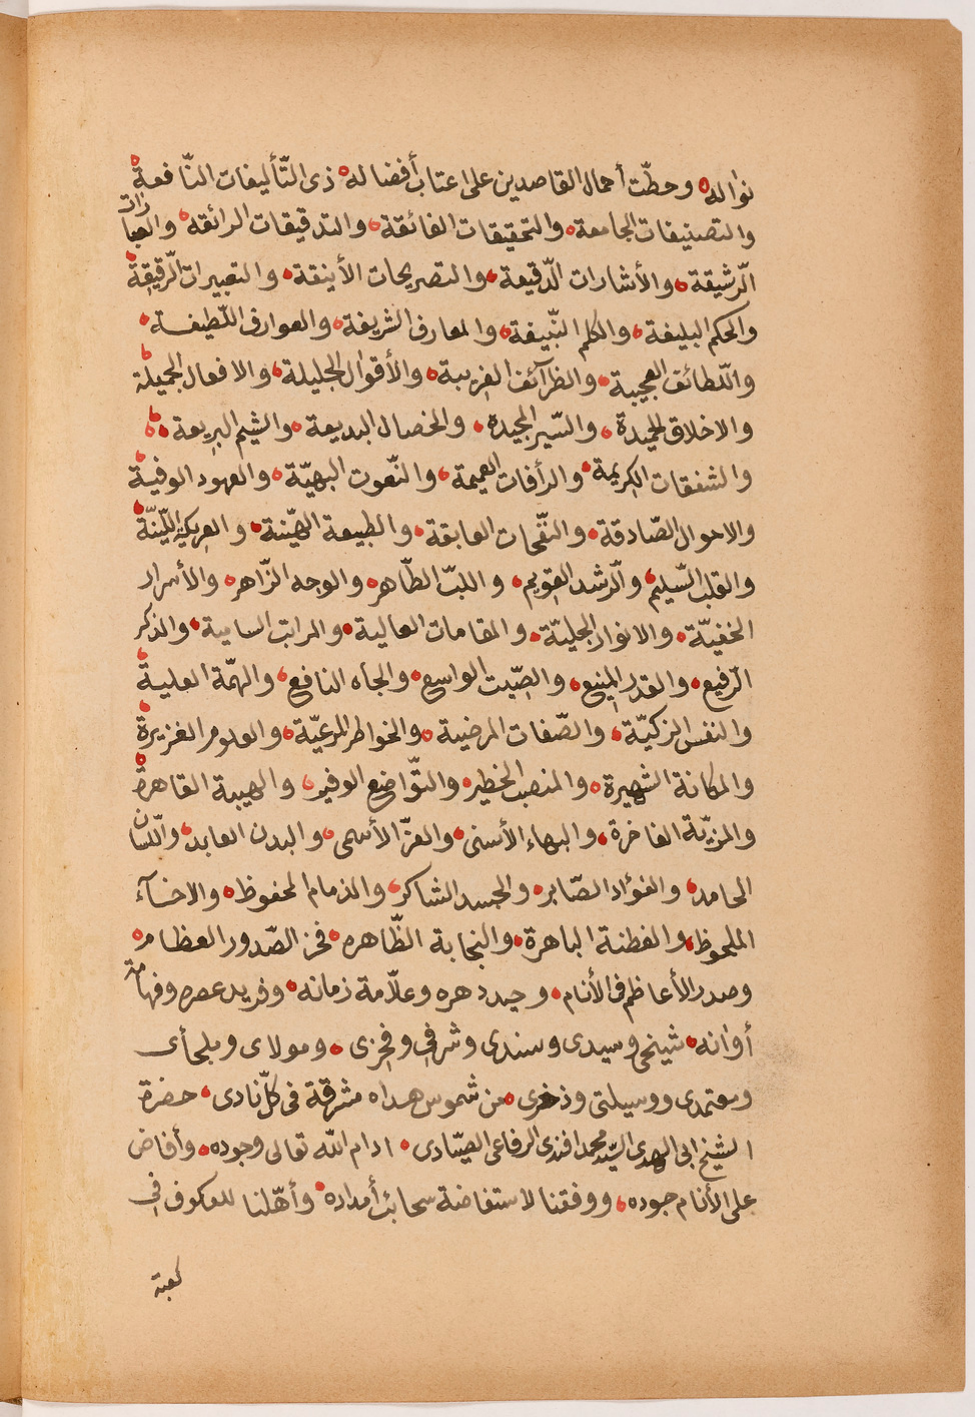 نواله وحطّت أحمال القاصدين على اعتاب أفضاله ذى التّأليفات النّافعة
والتصنيفات الجامعة والتحقيقات الفائقة والتدقيقات الرائقه والعبارات
الّرشيقة والأشارات الّدقيعة والتصريحات الأينقة والتعبيرات الّرقيقة
والحكم البليغة والكلم النّبيغة والمعارف الشريفة والعوارف اللّطيفة
واللّطائف العجيبة والظرآئف الغريبة والأقوال الجليلة والافعال الجميلة
والاخلاق الحميدة والسّير المجيده والخصال البديعة والشيم البريعة
والشفقات الكريمة والرأفات العميمة والنّعوت البهيّة والعهود الوفية
والاحوال الصّادقة والنفّحات العابقة والطبيعة الهيّنة والعريكة اللّينّة
والقلب السّليم والّرشد القويم واللبّ الطّاهر والوجه الزّاهر والأسرار
الخفيّة والانوار الجليّة والمقامات العالية والمراتب السامية والذكر
الّرفيع والقدر المنيع والصّيت الواسع والجاه النافع والهمّة العلية
والنفس الزكيّة والصّفات المرضية والخواطر المرعيّة والعلوم الغزيرة
والمكانة الشهيرة والمنصب الخطير والتّواضع الوفير والهيبة القاهرة
والمزيّة الفاخرة والبهاء الأسنى والعزّ الأسمى والبدن العابد واللّسان
الحامد والفؤاد الصّابر والجسد الشاكر والذمام المحفوظ والاخآء
الملحوظ والفطنة الباهرة والنجابة الظّاهره فخر الصّدور العظام
وصدر الأعاظم فى الأنام وحيد دهره وعلاّمة زمانه وفريد عصره وفهامة
أوانه شيخى وسيدى وسندى وشرفي وفخرى ومولاى وملجأى
ومعتمدى ووسيلتى وذخرى من شموس هداه مشرقة فى كلّ نادى حضرة
الشيخ ابى الهدى السّيد محمد افندى الرفاعى الصيّادى ادام الله تعالى وجوده وأفاض
على الأنام جوده ووفقنا لاستفاضة سحائب أمداده وأهّلنا للعكوف في
كعبة